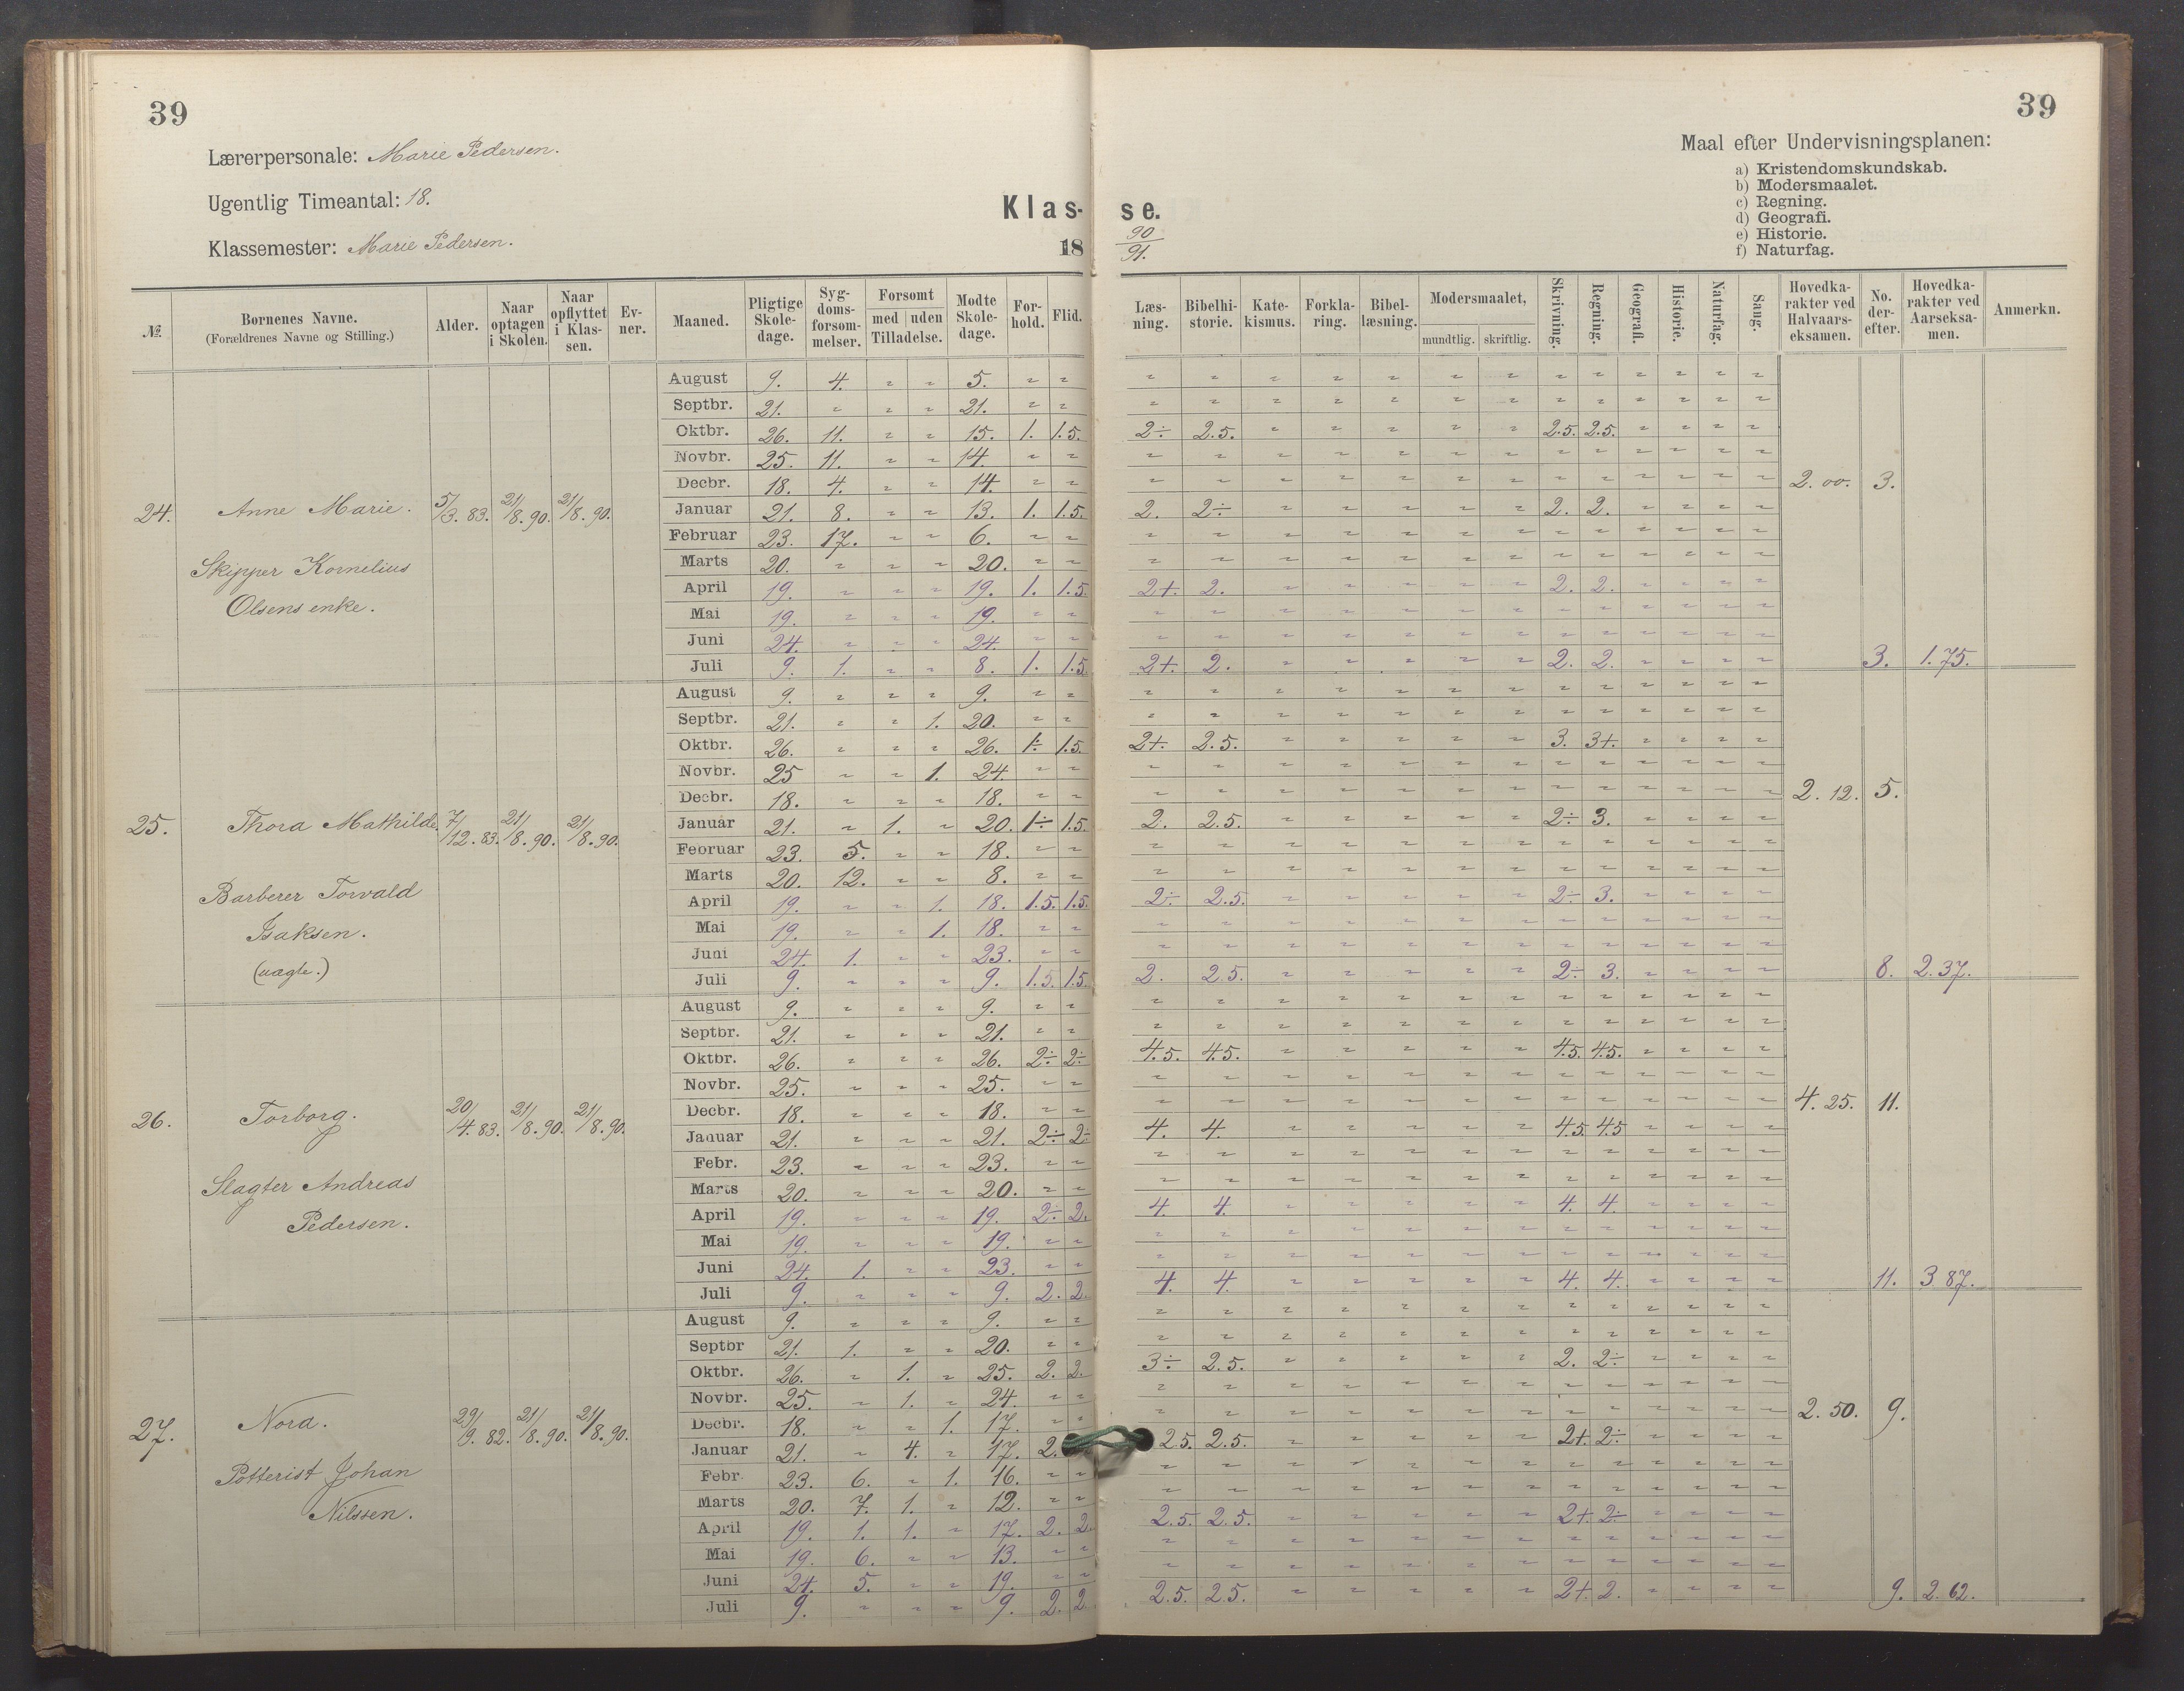 39
39
Lærerpersonale: Marie Pedersen.
Ugentlig Timeantal: 18.
Klassemester: Marie Pedersen.
Klas- se.
18 90/91.
Maal efter Undervisningsplanen:
a) Kristendomskundskab.
b) Modersmaalet.
c) Regning.
d) Geografi.
e) Historie.
f) Naturfag.
№ | Børnenes Navne. (Forældrenes Navne og Stilling.) | Alder. | Naar optagen i Skolen. | Naar opflyttet i Klassen. | Evner. | Maaned. | Pligtige Skoledage. | Sygdomsforsømmelser. | Forsømt med / uden Tilladelse. | Mødte Skoledage. | Forhold. | Flid. | Læsning. | Bibelhistorie. | Katekismus. | Forklaring. | Bibellæsning. | Modersmaalet, mundtlig. skriftlig. | Skrivning. | Regning. | Geografi. | Historie. | Naturfag. | Sang. | Hovedkarakter ved Halvaarseksamen. | No. derefter. | Hovedkarakter ved Aarseksamen. | Anmerkn.
24. Anne Marie. 5/3.83. 21/8.90. 21/8.90.
Skipper Kornelius
Olsens enke.
August 9. 4. " " 5. " "
Septbr. 21. " " " 21. " "
Oktbr. 26. 11. " " 15. 1. 1.5. 2÷ 2.5. " " " " " 2.5. 2.5. " " " "
Novbr. 25. 11. " " 14. " "
Decbr. 18. 4. " " 14. " " 2.00. 3.
Januar 21. 8. " " 13. 1. 1.5. 2. 2÷ " " " " " 2. 2. " " " "
Februar 23. 17. " " 6. " "
Marts 20. " " " 20. " "
April 19. " " " 19. 1. 1.5. 2+. 2. " " " " " 2. 2. " " " "
Mai 19. " " " 19. " "
Juni 24. " " " 24. " "
Juli 9. 1. " " 8. 1. 1.5. 2+. 2. " " " " " 2. 2. " " " " 3. 1.75.
25. Thora Mathilde. 7/12.83. 21/8.90. 21/8.90.
Barberer Torvald
Isaksen.
(uægte.)
August 9. " " " 9. " "
Septbr. 21. " " 1. 20. " "
Oktbr. 26. " " " 26. 1÷ 1.5. 2+. 2.5. " " " " " 3. 3+. " " " "
Novbr. 25 " " 1. 24. " "
Decbr. 18. " " " 18. " " 2.12. 5.
Januar 21. " 1. " 20. 1÷ 1.5. 2. 2.5. " " " " " 2÷ 3. " " " "
Februar 23. 5. " " 18. " "
Marts 20. 12. " " 8. " "
April 19. " " 1. 18. 1.5. 1.5. 2÷ 2.5. " " " " " 2÷ 3. " " " "
Mai 19. " " 1. 18. " "
Juni 24. 1. " " 23. " "
Juli 9. " " " 9. 1.5. 1.5. 2. 2.5. " " " " " 2÷ 3. " " " " 8. 2.37.
26. Torborg. 20/4.83. 21/8.90. 21/8.90.
Slagter Andreas
Pedersen.
August 9. " " " 9. " "
Septbr. 21. " " " 21. " "
Oktbr. 26. " " " 26. 2÷ 2÷ 4.5. 4.5. " " " " " 4.5. 4.5. " " " "
Novbr. 25. " " " 25. " "
Decbr. 18. " " " 18. " " 4.25. 11.
Januar 21. " " " 21. 2÷ 2÷ 4. 4. " " " " " 4.5. 4.5 " " " "
Febr. 23. " " " 23. " "
Marts 20. " " " 20. " "
April 19. " " " 19. 2÷ 2. 4. 4. " " " " " 4. 4. " " " "
Mai 19. " " " 19. " "
Juni 24. 1. " " 23. " "
Juli 9. " " " 9. 2. 2. 4. 4. " " " " " 4. 4. " " " " 11. 3 87.
27. Nora. 29/9.82. 21/8.90. 21/8.90.
Potterist Johan
Nilssen.
August 9. " " " 9. " "
Septbr 21. 1. " " 20. " "
Oktbr. 26. " 1. " 25. 2. 2. 3÷ 2.5. " " " " " 2. 2÷ " " " "
Novbr. 25. " 1. " 24. " "
Decbr. 18. " " 1. 17. " " 2.50. 9.
Januar 21. " 4. " 17. 2. 2.5. 2.5. " " " " " 2+. 2÷ " " " "
Febr 23. 6. " 1. 16. " "
Marts 20. 7. 1. " 12. " "
April 19. 1. 1. " 17. 2. 2. 2.5. 2.5. " " " " " 2+. 2÷ " " " "
Mai 19. 6. " " 13. " "
Juni 24. 5. " " 19. " "
Juli 9. " " " 9. 2. 2. 2.5. 2.5. " " " " " 2+. 2. " " " " 9. 2.62.